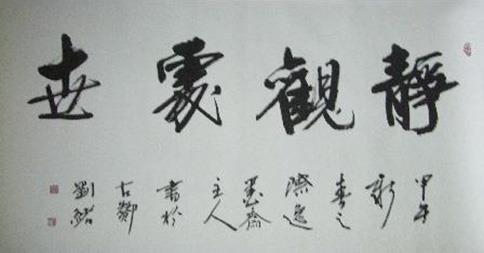 靜觀處世
甲午
新
春之
際逸
墨齋
主人
書於
古鄭
劉